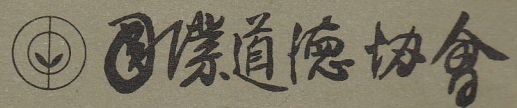 国際道德协會